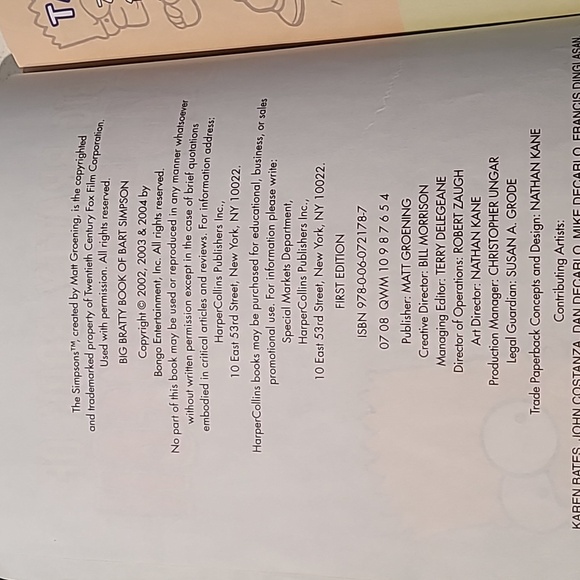 The Simpsons™, created by Matt Groening, is the copyrighted
and trademarked property of Twentieth Century Fox Film Corporation.
Used with permission. All rights reserved.
BIG BRATTY BOOK OF BART SIMPSON
Copyright © 2002, 2003 & 2004 by
Bongo Entertainment, Inc. All rights reserved.
No part of this book may be used or reproduced in any manner whatsoever
without written permission except in the case of brief quotations
embodied in critical articles and reviews. For information address:
HarperCollins Publishers Inc.,
10 East 53rd Street, New York, NY 10022.
HarperCollins books may be purchased for educational, business, or sales
promotional use. For information please write:
Special Markets Department,
HarperCollins Publishers Inc.,
10 East 53rd Street, New York, NY 10022.
FIRST EDITION
ISBN 978-0-06-072178-7
07 08 QWM 10 9 8 7 6 5 4
Publisher: MATT GROENING
Creative Director: BILL MORRISON
Managing Editor: TERRY DELEGEANE
Director of Operations: ROBERT ZAUGH
Art Director: NATHAN KANE
Production Manager: CHRISTOPHER UNGAR
Legal Guardian: SUSAN A. GRODE
Trade Paperback Concepts and Design: NATHAN KANE
Contributing Artists:
KAREN BATES, JOHN COSTANZA, DAN DECARLO, MIKE DECARLO, FRANCIS DINGLASAN,